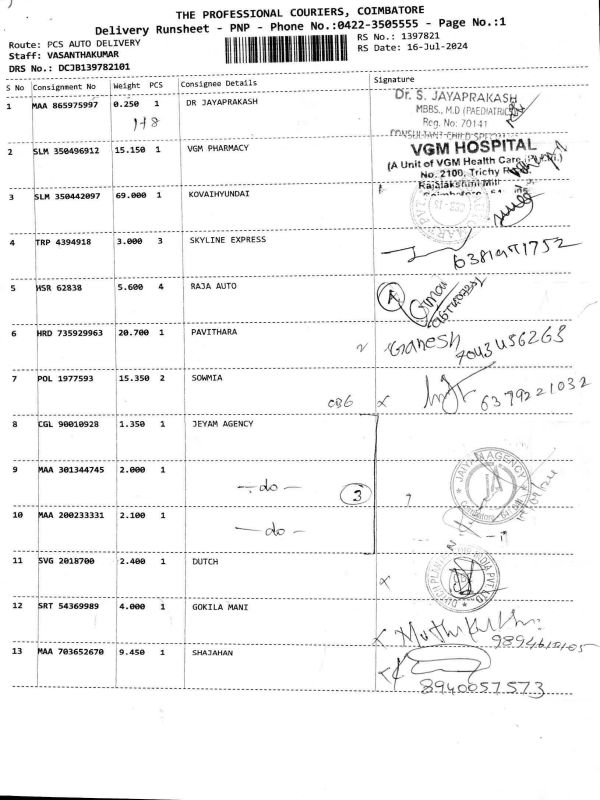 THE PROFESSIONAL COURIERS, COIMBATORE
Delivery Runsheet - PNP - Phone No.:0422-3505555 - Page No.:1
Route: PCS AUTO DELIVERY
RS No.: 1397821
Staff: VASANTHAKUMAR
RS Date: 16-Jul-2024
DRS No.: DCJB139782101
S No Consignment No Weight PCS Consignee Details Signature
1 MAA 865975997 0.250 1 DR JAYAPRAKASH
Dr. S. JAYAPRAKASH
MBBS., M.D (PAEDIATRICS)
Reg. No: 70141
CONSULTANT CHILD
2 SLM 350496912 15.150 1 VGM PHARMACY
VGM HOSPITAL
(A Unit of VGM Health Care
No. 2100, Trichy
Rajalakshmi Mill
3 SLM 350442097 69.000 1 KOVAIHYUNDAI
4 TRP 4394918 3.000 3 SKYLINE EXPRESS
6381971752
5 HSR 62838 5.600 4 RAJA AUTO
A
6 HRD 735929963 20.700 1 PAVITHARA
Ganesh
7043456263
7 POL 1977593 15.350 2 SOWMIA
6379221032
8 CGL 90010928 1.350 1 JEYAM AGENCY
9 MAA 301344745 2.000 1
- do -
3
JAIYAM AGENCY
Coimbatore
10 MAA 200233331 2.100 1
- do -
11 SVG 2018700 2.400 1 DUTCH
12 SRT 54369989 4.000 1 GOKILA MANI
13 MAA 703652670 9.450 1 SHAJAHAN
8940057573